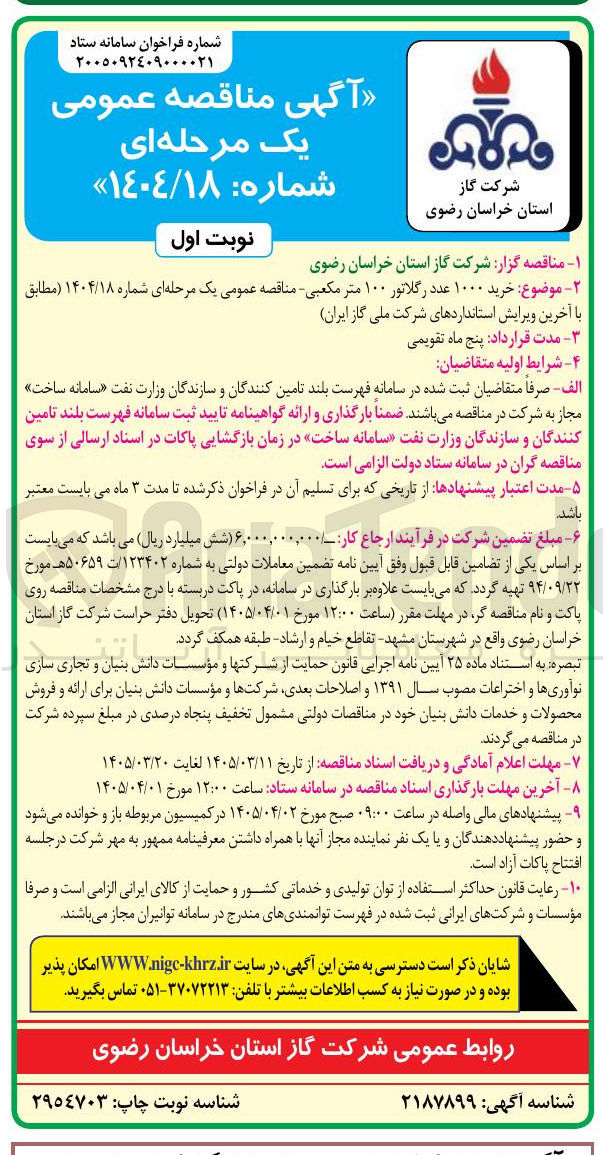 شماره فراخوان سامانه ستاد
۲۰۰۵۰۹۲۴۰۹۰۰۰۰۲۱
«آگهی مناقصه عمومی
یک مرحله‌ای
شماره: ۱۴۰۴/۱۸»
شرکت گاز
استان خراسان رضوی
نوبت اول
۱- مناقصه گزار: شرکت گاز استان خراسان رضوی
۲- موضوع: خرید ۱۰۰۰ عدد رگلاتور ۱۰۰ متر مکعبی- مناقصه عمومی یک مرحله‌ای شماره ۱۴۰۴/۱۸ (مطابق
با آخرین ویرایش استانداردهای شرکت ملی گاز ایران)
۳- مدت قرارداد: پنج ماه تقویمی
۴- شرایط اولیه متقاضیان:
الف- صرفاً متقاضیان ثبت شده در سامانه فهرست بلند تامین کنندگان و سازندگان وزارت نفت «سامانه ساخت»
مجاز به شرکت در مناقصه می‌باشند. ضمناً بارگذاری و ارائه گواهینامه تایید ثبت سامانه فهرست بلند تامین
کنندگان و سازندگان وزارت نفت «سامانه ساخت» در زمان بازگشایی پاکات در اسناد ارسالی از سوی
مناقصه گران در سامانه ستاد دولت الزامی است.
۵-مدت اعتبار پیشنهادها: از تاریخی که برای تسلیم آن در فراخوان ذکرشده تا مدت ۳ ماه می بایست معتبر
باشد.
۶- مبلغ تضمین شرکت در فرآیند ارجاع کار: ــ/۶,۰۰۰,۰۰۰,۰۰۰ (شش میلیارد ریال) می باشد که می‌بایست
بر اساس یکی از تضامین قابل قبول وفق آیین نامه تضمین معاملات دولتی به شماره ۱۲۳۴۰۲/ت ۵۰۶۵۹هـ مورخ
۹۴/۰۹/۲۲ تهیه گردد. که می‌بایست علاوه‌بر بارگذاری در سامانه، در پاکت دربسته با درج مشخصات مناقصه روی
پاکت و نام مناقصه گر، در مهلت مقرر (ساعت ۱۲:۰۰ مورخ ۱۴۰۵/۰۴/۰۱) تحویل دفتر حراست شرکت گاز استان
خراسان رضوی واقع در شهرستان مشهد- تقاطع خیام و ارشاد- طبقه همکف گردد.
تبصره: به استناد ماده ۲۵ آیین نامه اجرایی قانون حمایت از شرکتها و مؤسسات دانش بنیان و تجاری سازی
نوآوری‌ها و اختراعات مصوب سال ۱۳۹۱ و اصلاحات بعدی، شرکت‌ها و مؤسسات دانش بنیان برای ارائه و فروش
محصولات و خدمات دانش بنیان خود در مناقصات دولتی مشمول تخفیف پنجاه درصدی در مبلغ سپرده شرکت
در مناقصه می‌گردند.
۷- مهلت اعلام آمادگی و دریافت اسناد مناقصه: از تاریخ ۱۴۰۵/۰۳/۱۱ لغایت ۱۴۰۵/۰۳/۲۰
۸- آخرین مهلت بارگذاری اسناد مناقصه در سامانه ستاد: ساعت ۱۲:۰۰ مورخ ۱۴۰۵/۰۴/۰۱
۹- پیشنهادهای مالی واصله در ساعت ۰۹:۰۰ صبح مورخ ۱۴۰۵/۰۴/۰۲ در کمیسیون مربوطه باز و خوانده می‌شود
و حضور پیشنهاددهندگان و یا یک نفر نماینده مجاز آنها با همراه داشتن معرفینامه ممهور به مهر شرکت درجلسه
افتتاح پاکات آزاد است.
۱۰- رعایت قانون حداکثر استفاده از توان تولیدی و خدماتی کشور و حمایت از کالای ایرانی الزامی است و صرفا
مؤسسات و شرکت‌های ایرانی ثبت شده در فهرست توانمندی‌های مندرج در سامانه توانیران مجاز می‌باشند.
شایان ذکر است دسترسی به متن این آگهی، در سایت WWW.nigc-khrz.ir امکان پذیر
بوده و در صورت نیاز به کسب اطلاعات بیشتر با تلفن: ۳۷۰۷۲۲۱۳-۰۵۱ تماس بگیرید.
روابط عمومی شرکت گاز استان خراسان رضوی
شناسه آگهی: ۲۱۸۷۸۹۹
شناسه نوبت چاپ: ۲۹۵٤۷۰۳